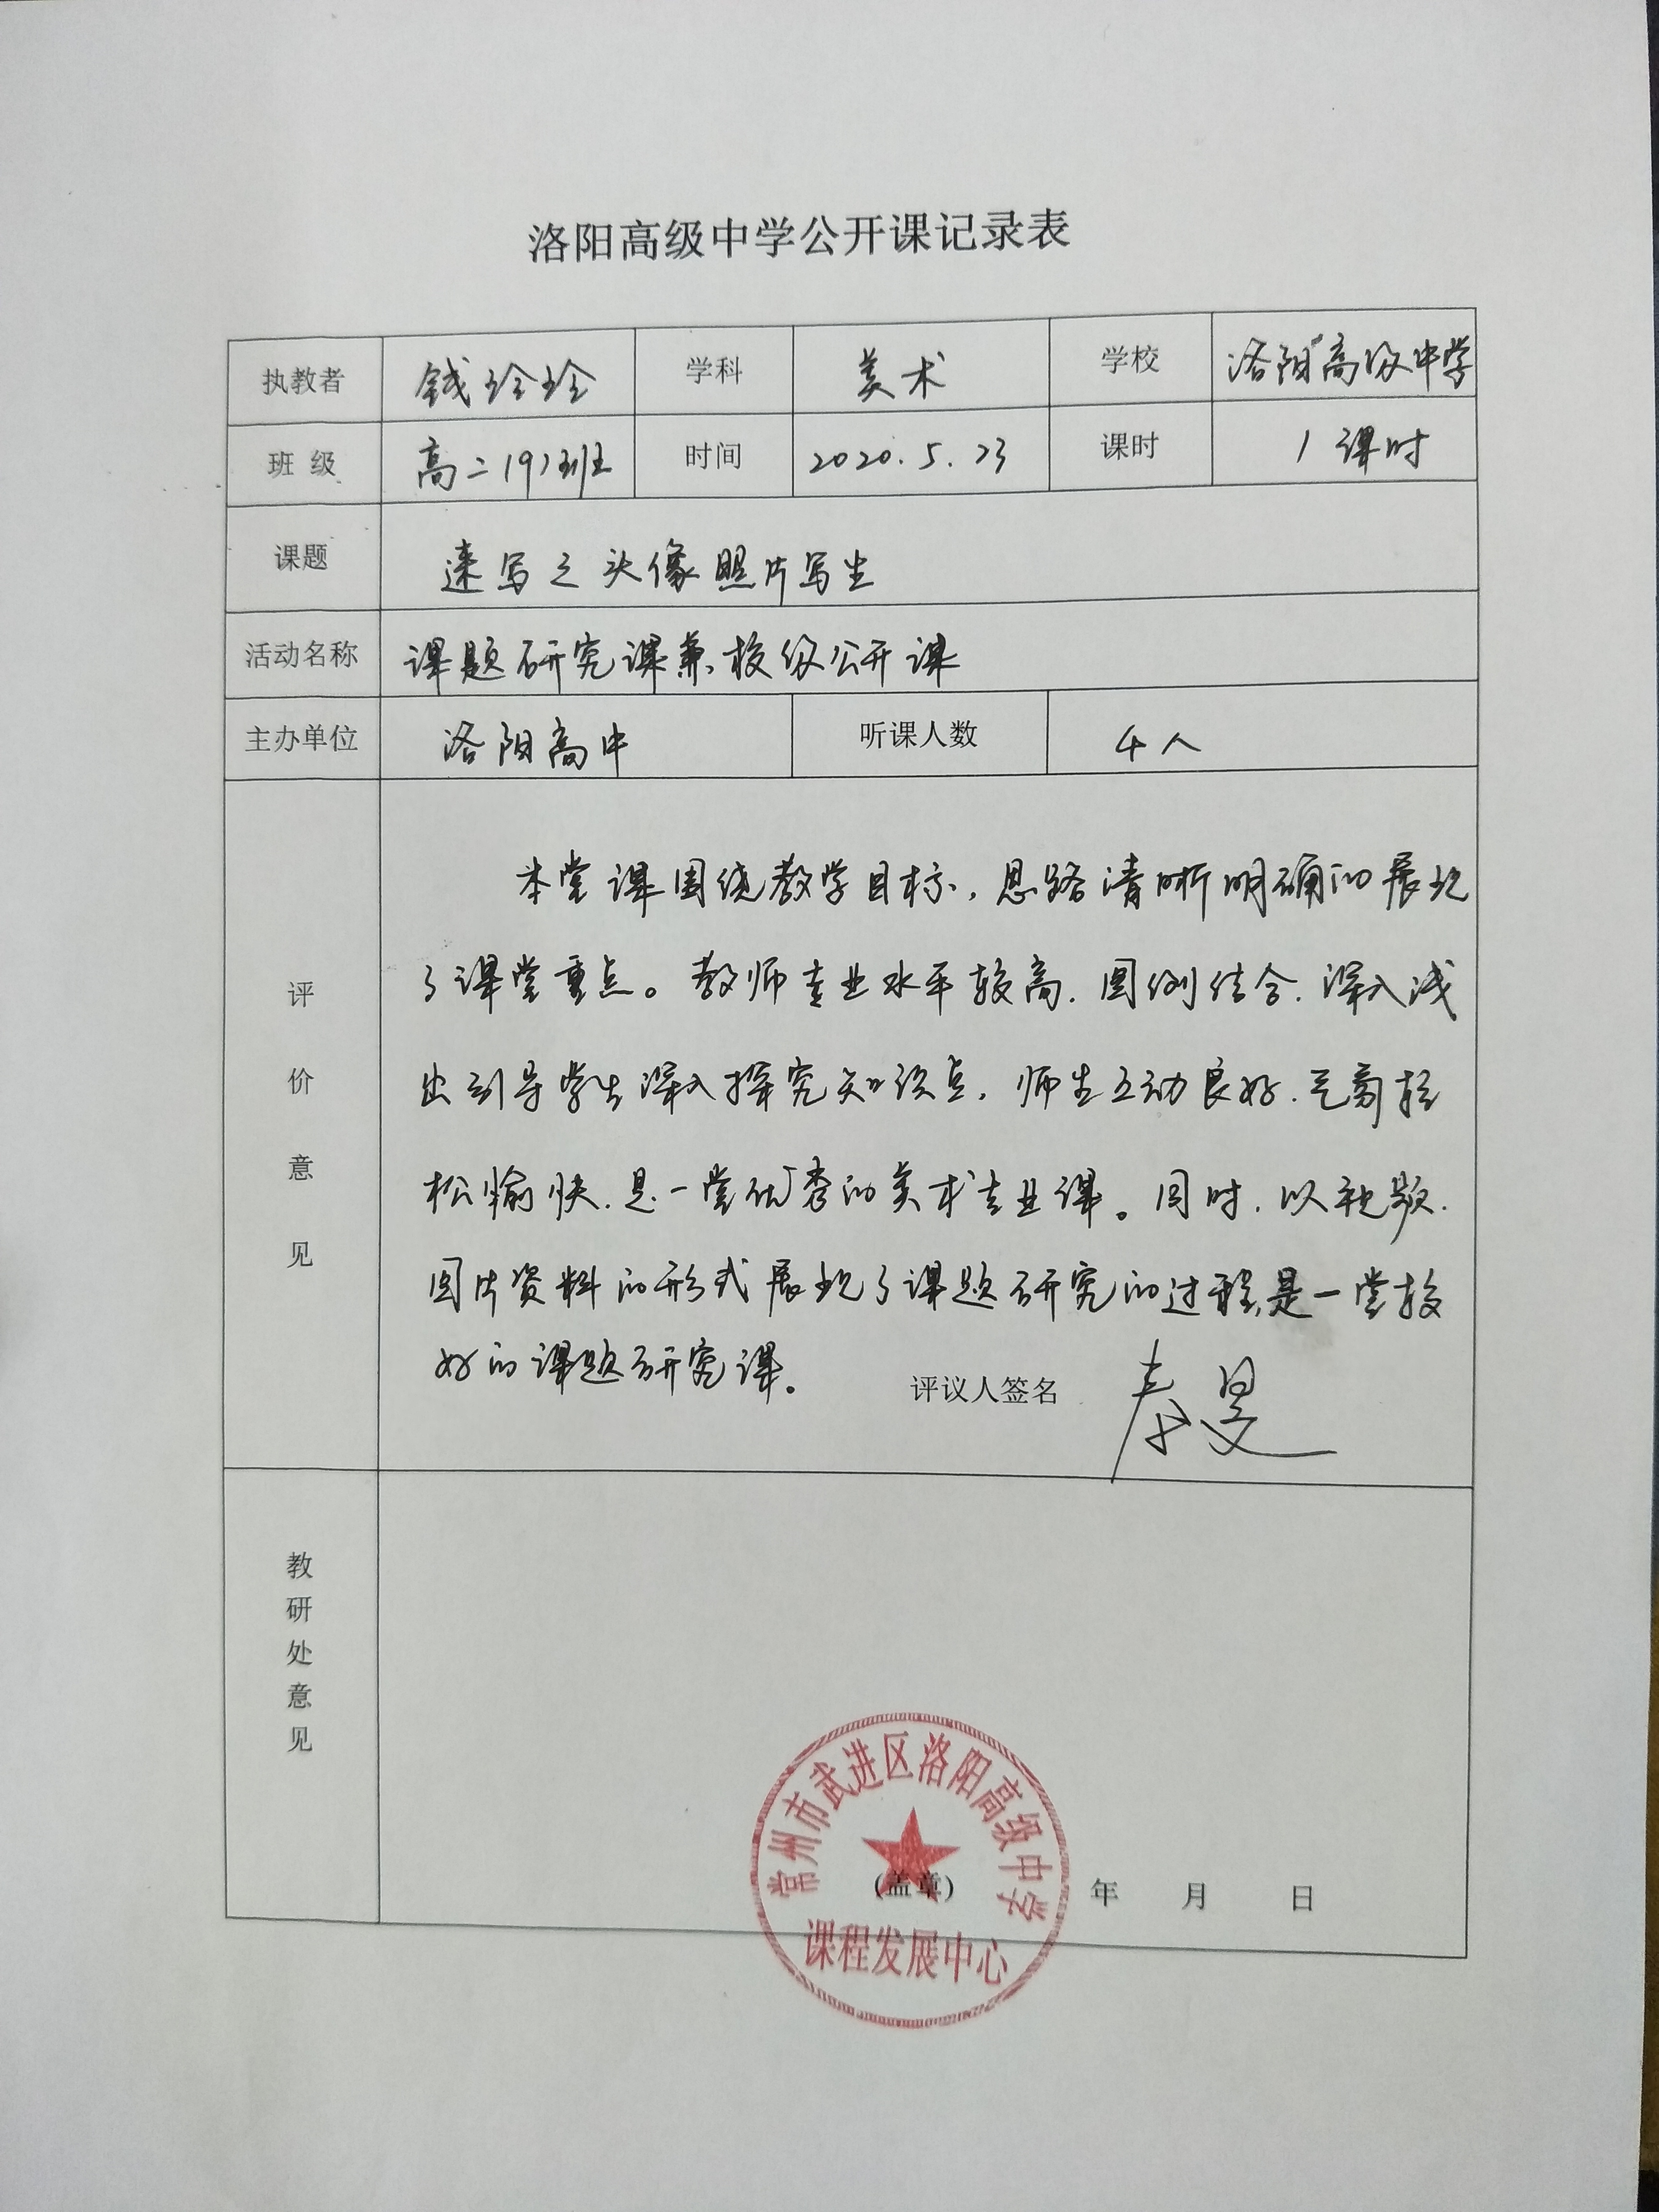 洛阳高级中学公开课记录表
执教者 钱玲玲 学科 美术 学校 洛阳高级中学
班 级 高二(9)班 时间 2020.5.23 课时 1课时
课题 速写之头像照片写生
活动名称 课题研究课兼校级公开课
主办单位 洛阳高中 听课人数 4人
评价意见
本堂课围绕教学目标，思路清晰明确的展现
了课堂重点。教师专业水平较高，图例结合，深入浅
出引导学生深入探究知识点，师生互动良好，气氛轻
松愉快，是一堂优秀的美术专业课。同时，以视频、
图片资料的形式展现了课题研究的过程，是一堂较
好的课题研究课。
评议人签名 秦旻
教研处意见
(盖章) 年 月 日
常州市武进区洛阳高级中学
课程发展中心